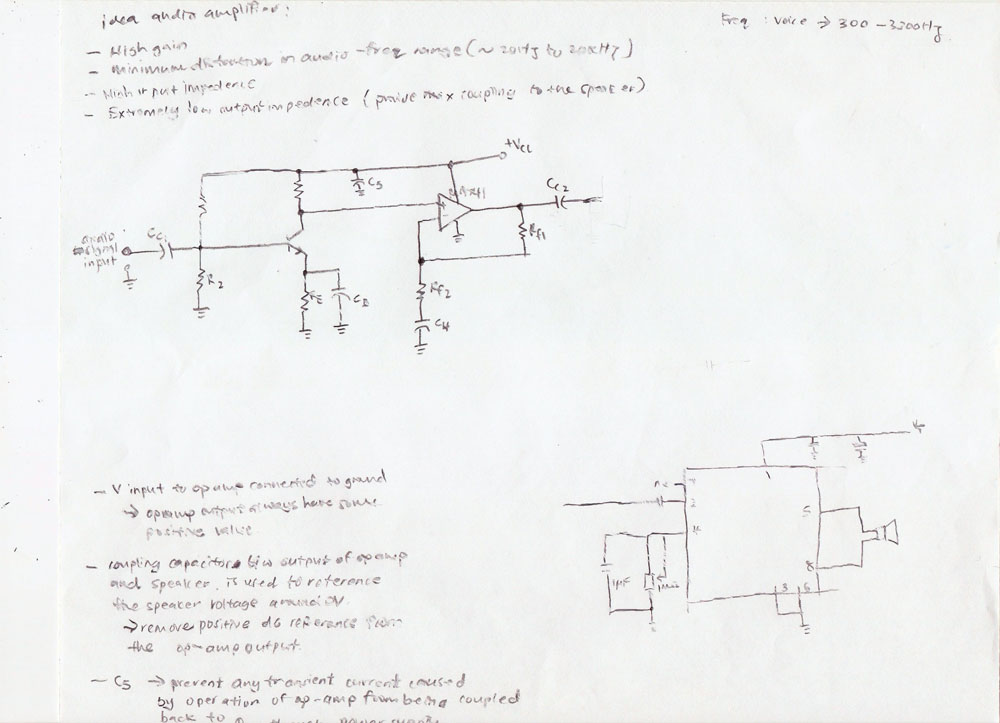 idea audio amplifier:
Freq : voice → 300 - 3200Hz
- High gain
- minimum distortion in audio-freq range (~ 20Hz to 20kHz)
- High input impedence
- Extremely low output impedence ( provide max coupling to the speaker)
+Vcc
C5
CC2
audio
signal
input
CC1
Rf1
R2
RE
CE
Rf2
C4
- V input to op amp connected to ground
→ opamp output always have some
positive value
- coupling capacitor b/w output of op-amp
and speaker, is used to reference
the speaker voltage around 0V.
→ remove positive dc reference from
the op-amp output.
- C5 → prevent any transient current caused
by operation of op-amp from being coupled
back to through power supply
1
2
4
5
8
3 6
1μF